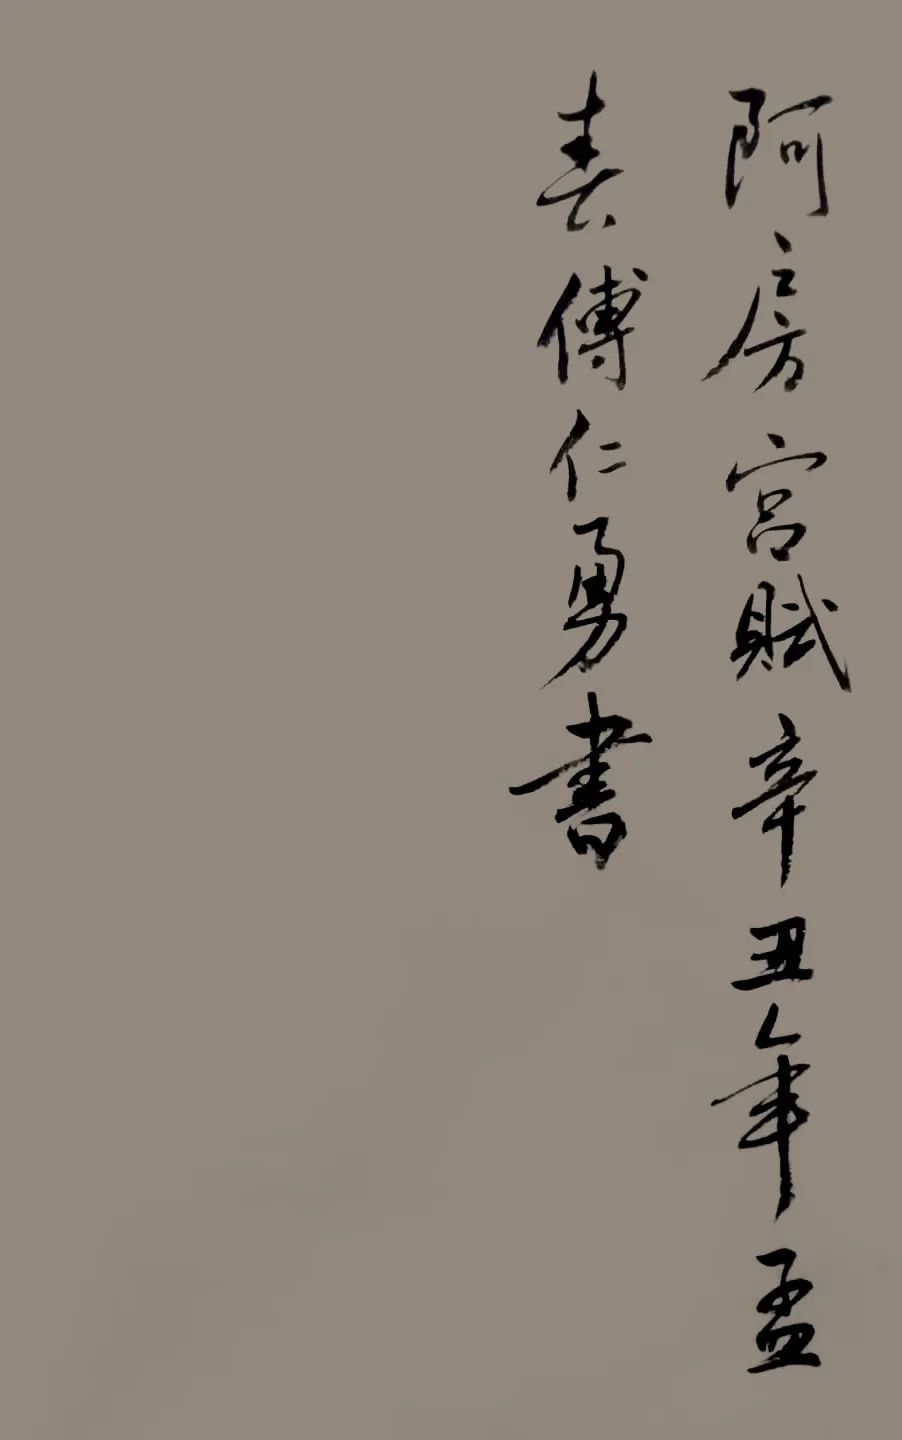 阿房宫賦辛丑年孟
春傅仁勇書